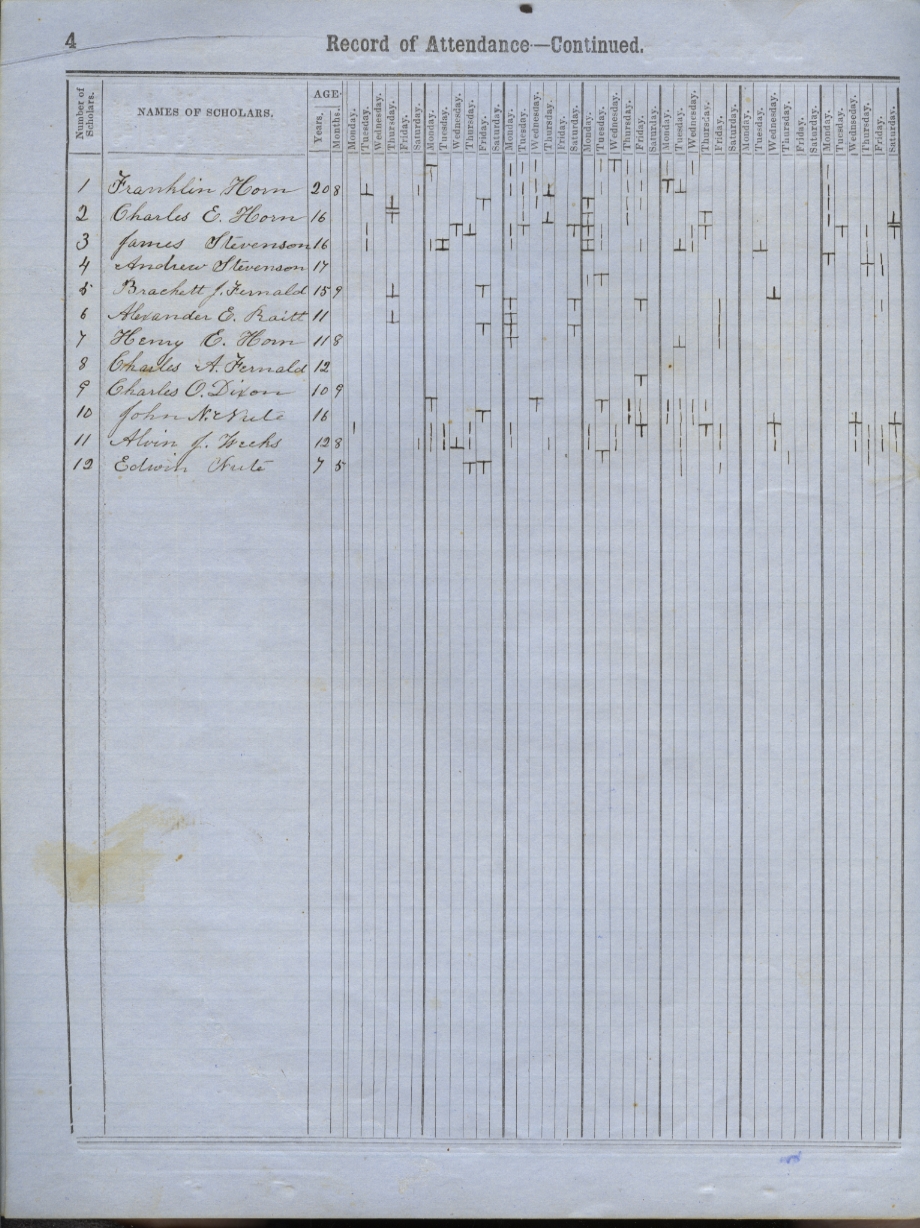 4
Record of Attendance—Continued.
Number of Scholars. NAMES OF SCHOLARS. AGE Years, Months. Monday. Tuesday. Wednesday. Thursday. Friday. Saturday. Monday. Tuesday. Wednesday. Thursday. Friday. Saturday. Monday. Tuesday. Wednesday. Thursday. Friday. Saturday. Monday. Tuesday. Wednesday. Thursday. Friday. Saturday. Monday. Tuesday. Wednesday. Thursday. Friday. Saturday. Monday. Tuesday. Wednesday. Thursday. Friday. Saturday. Monday. Tuesday. Wednesday. Thursday. Friday. Saturday.
1 Franklin Horn 20 8
2 Charles E. Horn 16
3 James Stevenson 16
4 Andrew Stevenson 17
5 Brackett J. Fernald 15 9
6 Alexander E. Raitt 11
7 Henry E. Horn 11 8
8 Charles A. Fernald 12
9 Charles O. Dixon 10 9
10 John N. Nute 16
11 Alvin J. Weeks 12 8
12 Edwin Nute 7 5